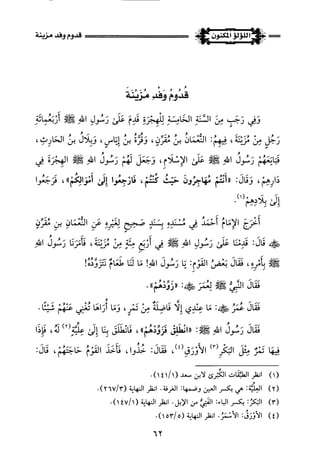 اللؤلؤ المكنون
قدوم وفد مزينة
قُدُومُ وَفْدِ مُزَيْنَةَ
وَفِي رَجَبٍ مِنَ السَّنَةِ الخَامِسَةِ لِلْهِجْرَةِ قَدِمَ عَلَى رَسُولِ اللهِ ﷺ أَرْبَعُمِائَةِ
رَجُلٍ مِنْ مُزَيْنَةَ، فِيهِمْ: النُّعْمَانُ بنُ مُقَرِّنٍ، وَقُرَّةُ بنُ إِيَاسٍ، وَبِلَالُ بنُ الحَارِثِ،
فَبَايَعَهُمْ رَسُولُ اللهِ ﷺ عَلَى الإِسْلَامِ، وَجَعَلَ لَهُمْ رَسُولُ اللهِ ﷺ الهِجْرَةَ فِي
دَارِهِمْ، وَقَالَ: «أَنْتُمْ مُهَاجِرُونَ حَيْثُ كُنْتُمْ، فَارْجِعُوا إِلَى أَمْوَالِكُمْ»، فَرَجَعُوا
إِلَى بِلَادِهِمْ(١).
أَخْرَجَ الإِمَامُ أَحْمَدُ فِي مُسْنَدِهِ بِسَنَدٍ صَحِيحٍ لِغَيْرِهِ عَنِ النُّعْمَانِ بنِ مُقَرِّنٍ
قَالَ: قَدِمْنَا عَلَى رَسُولِ اللهِ ﷺ فِي أَرْبَعِ مِئَةٍ مِنْ مُزَيْنَةَ، فَأَمَرَنَا رَسُولُ اللهِ
بِأَمْرِهِ، فَقَالَ بَعْضُ القَوْمِ: يَا رَسُولَ اللهِ! مَا لَنَا طَعَامٌ نَتَزَوَّدُهُ؟!
فَقَالَ النَّبِيُّ ﷺ لِعُمَرَ: «زَوِّدْهُمْ».
فَقَالَ عُمَرُ: مَا عِنْدِي إِلَّا فَاضِلَةٌ مِنْ تَمْرٍ، وَمَا أُرَاهَا تُغْنِي عَنْهُمْ شَيْئًا.
فَقَالَ رَسُولُ اللهِ ﷺ: «انْطَلِقْ فَزَوِّدْهُمْ»، فَانْطَلَقَ بِنَا إِلَى عِلِّيَّةٍ(٢) لَهُ، فَإِذَا
فِيهَا تَمْرٌ مِثْلَ البَكْرِ(٣) الأَوْرَقِ(٤)، فَقَالَ: خُذُوا، فَأَخَذَ القَوْمُ حَاجَتَهُمْ، قَالَ:
(١) انظر الطَّبَقَات الكُبْرى لابن سعد (١٤١/١).
(٢) العِلِّيَّةُ: هي بكسر العين وضمها: الغرفة. انظر النهاية (٢٦٧/٣).
(٣) البَكْرُ: بكسر الباء: الفَتِيُّ من الإبل. انظر النهاية (١٤٧/١).
(٤) الأَوْرَقُ: الأَسْمَرُ. انظر النهاية (١٥٣/٥).
٦٢